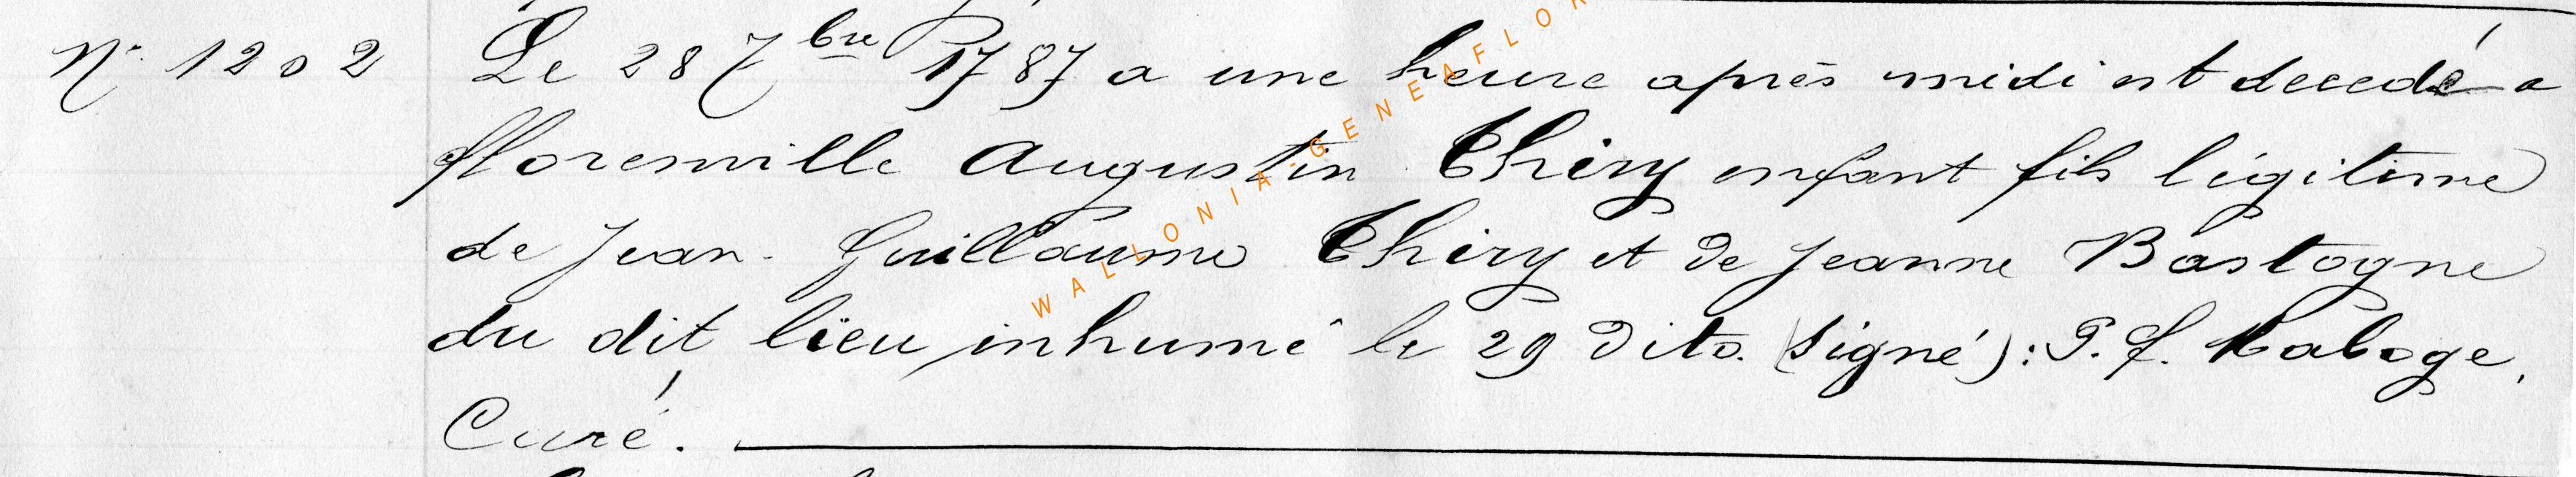 N° 1202 Le 28 7bre 1787 a une heure après midi est decedé a
florenville Augustin Thiry enfant fils légitime
de Jean-Guillaume Thiry et de Jeanne Bastogne
du dit lieu inhumé le 29 dito. (Signé): P. f. Maboge,
Curé.
WALLONIA-GENEAFLOR